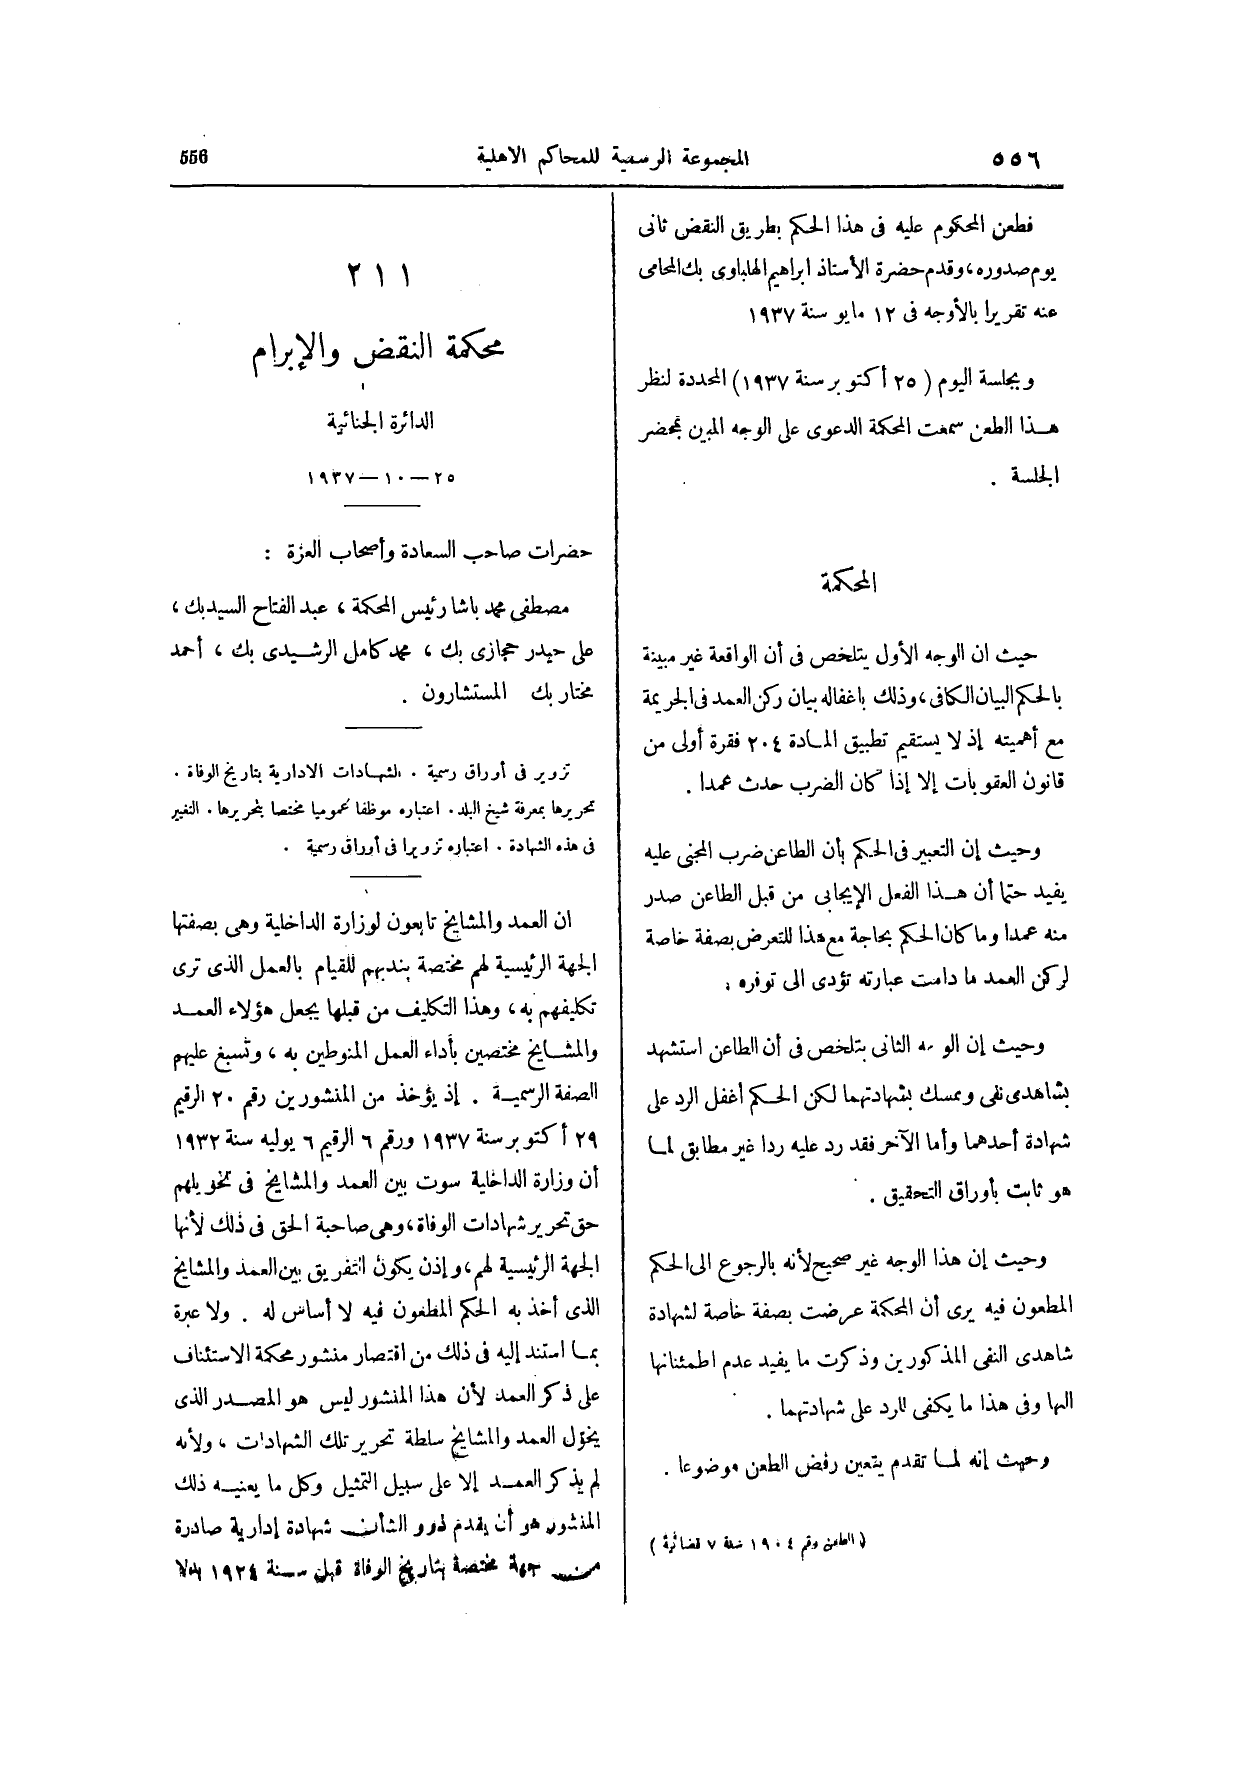 ٥٥٦
المجموعة الرسمية للمحاكم الاهلية
556
فطعن المحكوم عليه فى هذا الحكم بطريق النقض ثانى
يوم صدوره، وقدم حضرة الأستاذ ابراهيم الهلباوى بك المحامى
عنه تقريرا بالأوجه فى ١٢ مايو سنة ١٩٣٧
وبجلسة اليوم (٢٥ أكتوبر سنة ١٩٣٧) المحددة لنظر
هذا الطعن سمعت المحكمة الدعوى على الوجه المبين بمحضر
الجلسة .
المحكمة
حيث ان الوجه الأول يتلخص فى أن الواقعة غير مبينة
بالحكم البيان الكافى، وذلك باغفاله بيان ركن العمد فى الجريمة
مع أهميته إذ لا يستقيم تطبيق المادة ٢٠٤ فقرة أولى من
قانون العقوبات إلا إذا كان الضرب حدث عمدا .
وحيث إن التعبير فى الحكم بأن الطاعن ضرب المجنى عليه
يفيد حتما أن هذا الفعل الإيجابى من قبل الطاعن صدر
منه عمدا وما كان الحكم بحاجة مع هذا للتعرض بصفة خاصة
لركن العمد ما دامت عبارته تؤدى الى توفره .
وحيث إن الوجه الثانى يتلخص فى أن الطاعن استشهد
بشاهدى نفى وتمسك بشهادتهما لكن الحكم أغفل الرد على
شهادة أحدهما وأما الآخر فقد رد عليه ردا غير مطابق لما
هو ثابت بأوراق التحقيق .
وحيث إن هذا الوجه غير صحيح لأنه بالرجوع الى الحكم
المطعون فيه يرى أن المحكمة عرضت بصفة خاصة لشهادة
شاهدى النفى المذكورين وذكرت ما يفيد عدم اطمئنانها
اليها وفى هذا ما يكفى للرد على شهادتهما .
وحيث إنه لما تقدم يتعين رفض الطعن موضوعا .
(الطعن رقم ١٩٠٤ سنة ٧ قضائية)
٢١١
محكمة النقض والإبرام
الدائرة الجنائية
٢٥—١٠—١٩٣٧
حضرات صاحب السعادة وأصحاب العزة :
مصطفى محمد باشا رئيس المحكمة ، عبد الفتاح السيد بك ،
على حيدر حجازى بك ، محمد كامل الرشيدى بك ، أحمد
مختار بك المستشارون .
تزوير فى أوراق رسمية . الشهادات الادارية بتاريخ الوفاة .
تحريرها بمعرفة شيخ البلد . اعتباره موظفا عموميا مختصا بتحريرها . التغيير
فى هذه الشهادة . اعتباره تزويرا فى أوراق رسمية .
ان العمد والمشايخ تابعون لوزارة الداخلية وهى بصفتها
الجهة الرئيسية لهم مختصة بندبهم للقيام بالعمل الذى ترى
تكليفهم به ، وهذا التكليف من قبلها يجعل هؤلاء العمد
والمشايخ مختصين بأداء العمل المنوطين به ، وتسبغ عليهم
الصفة الرسمية . إذ يؤخذ من المنشورين رقم ٢٠ الرقيم
٢٩ أكتوبر سنة ١٩٣٧ ورقم ٦ الرقيم ٦ يوليه سنة ١٩٣٢
أن وزارة الداخلية سوت بين العمد والمشايخ فى تخويلهم
حق تحرير شهادات الوفاة، وهى صاحبة الحق فى ذلك لأنها
الجهة الرئيسية لهم، وإذن يكون التفريق بين العمد والمشايخ
الذى أخذ به الحكم المطعون فيه لا أساس له . ولا عبرة
بما استند إليه فى ذلك من اقتصار منشور محكمة الاستئناف
على ذكر العمد لأن هذا المنشور ليس هو المصدر الذى
يخوّل العمد والمشايخ سلطة تحرير تلك الشهادات ، ولأنه
لم يذكر العمد إلا على سبيل التمثيل وكل ما يعنيه ذلك
المنشور هو أن يقدم ذوو الشأن شهادة إدارية صادرة
من جهة مختصة بتاريخ الوفاة قبل سنة ١٩٢٤